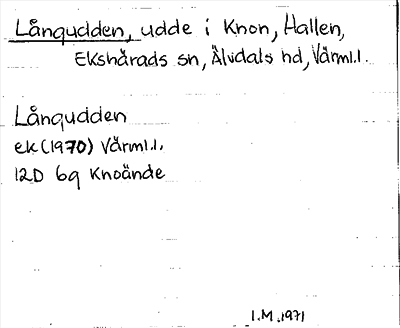 Långudden, udde i Knon, Hallen,
Ekshärads sn, Älvdals hd, Värml.l.
Långudden
ek (1970) Värml.l.
12D 6g Knoände
I.M. 1971